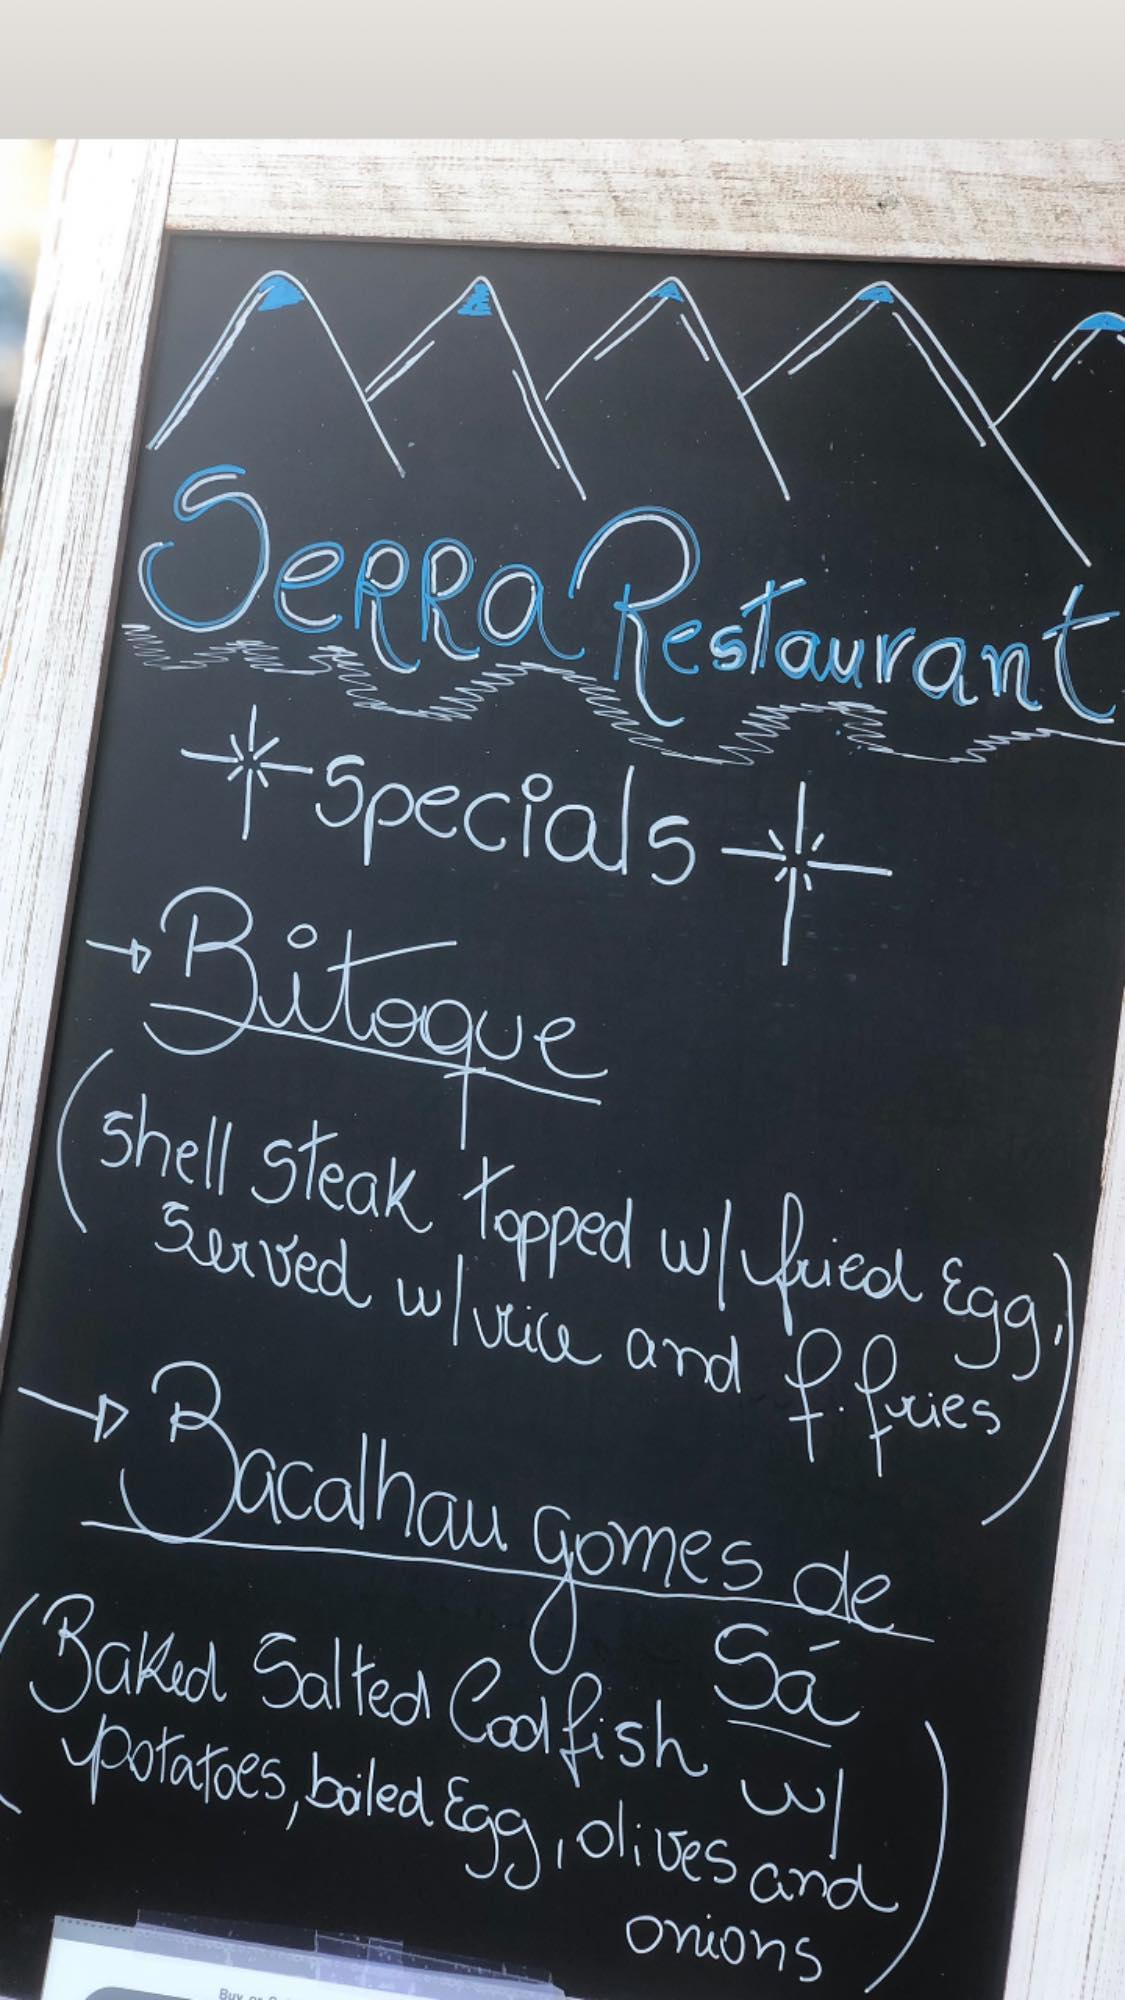 Serra Restaurant
Specials
Bitoque
(Shell Steak topped w/ fried Egg,
Served w/ rice and f. fries)
Bacalhau gomes de
Sá
(Baked Salted Codfish w/
potatoes, boiled Egg, olives and
onions)
Buy or